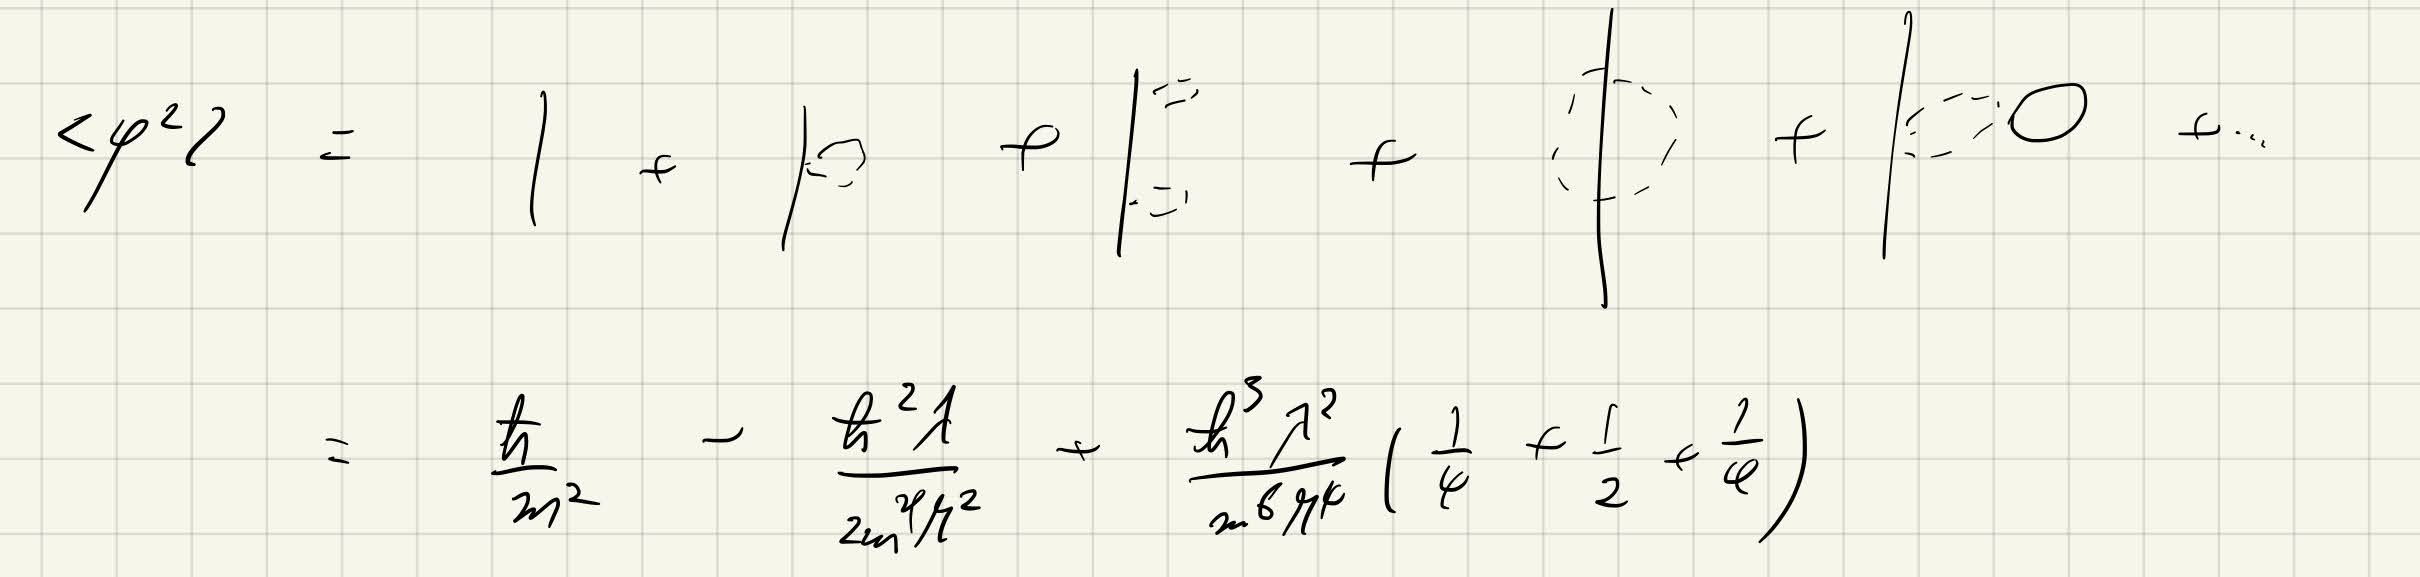 <φ²> = | + + + + + ...
= ħ/m² - ħ²λ/2m⁴M² + ħ³λ²/m⁶M⁴ (1/4 + 1/2 + 1/4)